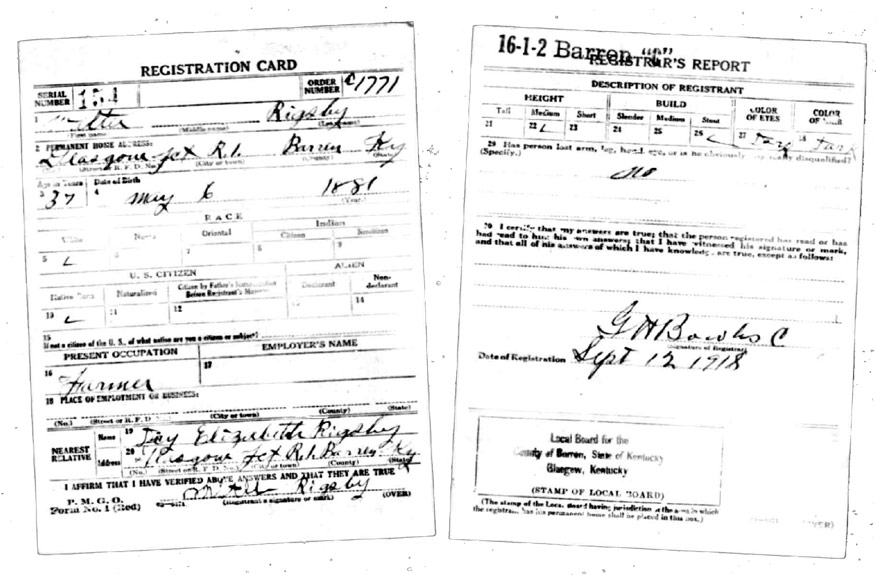 REGISTRATION CARD
SERIAL NUMBER 154 ORDER NUMBER C1771
1 Rigsby
First name (Middle name) (Last name)
2 PERMANENT HOME ADDRESS:
Glasgow Jct R.1. Barren Ky
(Street or R. F. D. No.) (City or town) (County) (State)
Age in Years Date of Birth
3 37 4 May 6 1881
(Year.)
RACE
White Negro Oriental Indian
Citizen Noncitizen
5 6 7 8 9
U. S. CITIZEN ALIEN
Native Born Naturalized Citizen by Father's Naturalization Before Registrant's Majority Declarant Non-declarant
10 11 12 13 14
15
If not a citizen of the U. S., of what nation are you a citizen or subject?
PRESENT OCCUPATION EMPLOYER'S NAME
16 Farmer 17
18 PLACE OF EMPLOYMENT OR BUSINESS:
(No.) (Street or R. F. D. No.) (City or town) (County) (State)
NEAREST RELATIVE
Name 19 Elizabeth Rigsby
Address 20 Glasgow Jct R.1. Barren Ky
(No.) (Street or R. F. D. No.) (City or town) (County) (State)
I AFFIRM THAT I HAVE VERIFIED ABOVE ANSWERS AND THAT THEY ARE TRUE
Rigsby
P. M. G. O.
Form No. 1 (Red) (Registrant's signature or mark) (OVER)
16-1-2 Barren
REGISTRAR'S REPORT
DESCRIPTION OF REGISTRANT
HEIGHT BUILD COLOR OF EYES COLOR OF HAIR
Tall Medium Short Slender Medium Stout
21 22 23 24 25 26 27 Dark 28 Dark
29 Has person lost arm, leg, hand, eye, or is he obviously physically disqualified?
(Specify.)
no
30 I certify that my answers are true; that the person registered has read or has
had read to him his own answers; that I have witnessed his signature or mark,
and that all of his answers of which I have knowledge are true, except as follows:
(Signature of Registrar)
Date of Registration Sept 12 1918
Local Board for the
County of Barren, State of Kentucky
Glasgow, Kentucky
(STAMP OF LOCAL BOARD)
(The stamp of the Local Board having jurisdiction of the area in which
the registrant has his permanent home shall be placed in this box.)
(OVER)